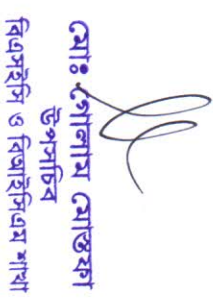 মোঃ গোলাম মোস্তফা
উপসচিব
বিএসইসি ও বিআইসিএম শাখা